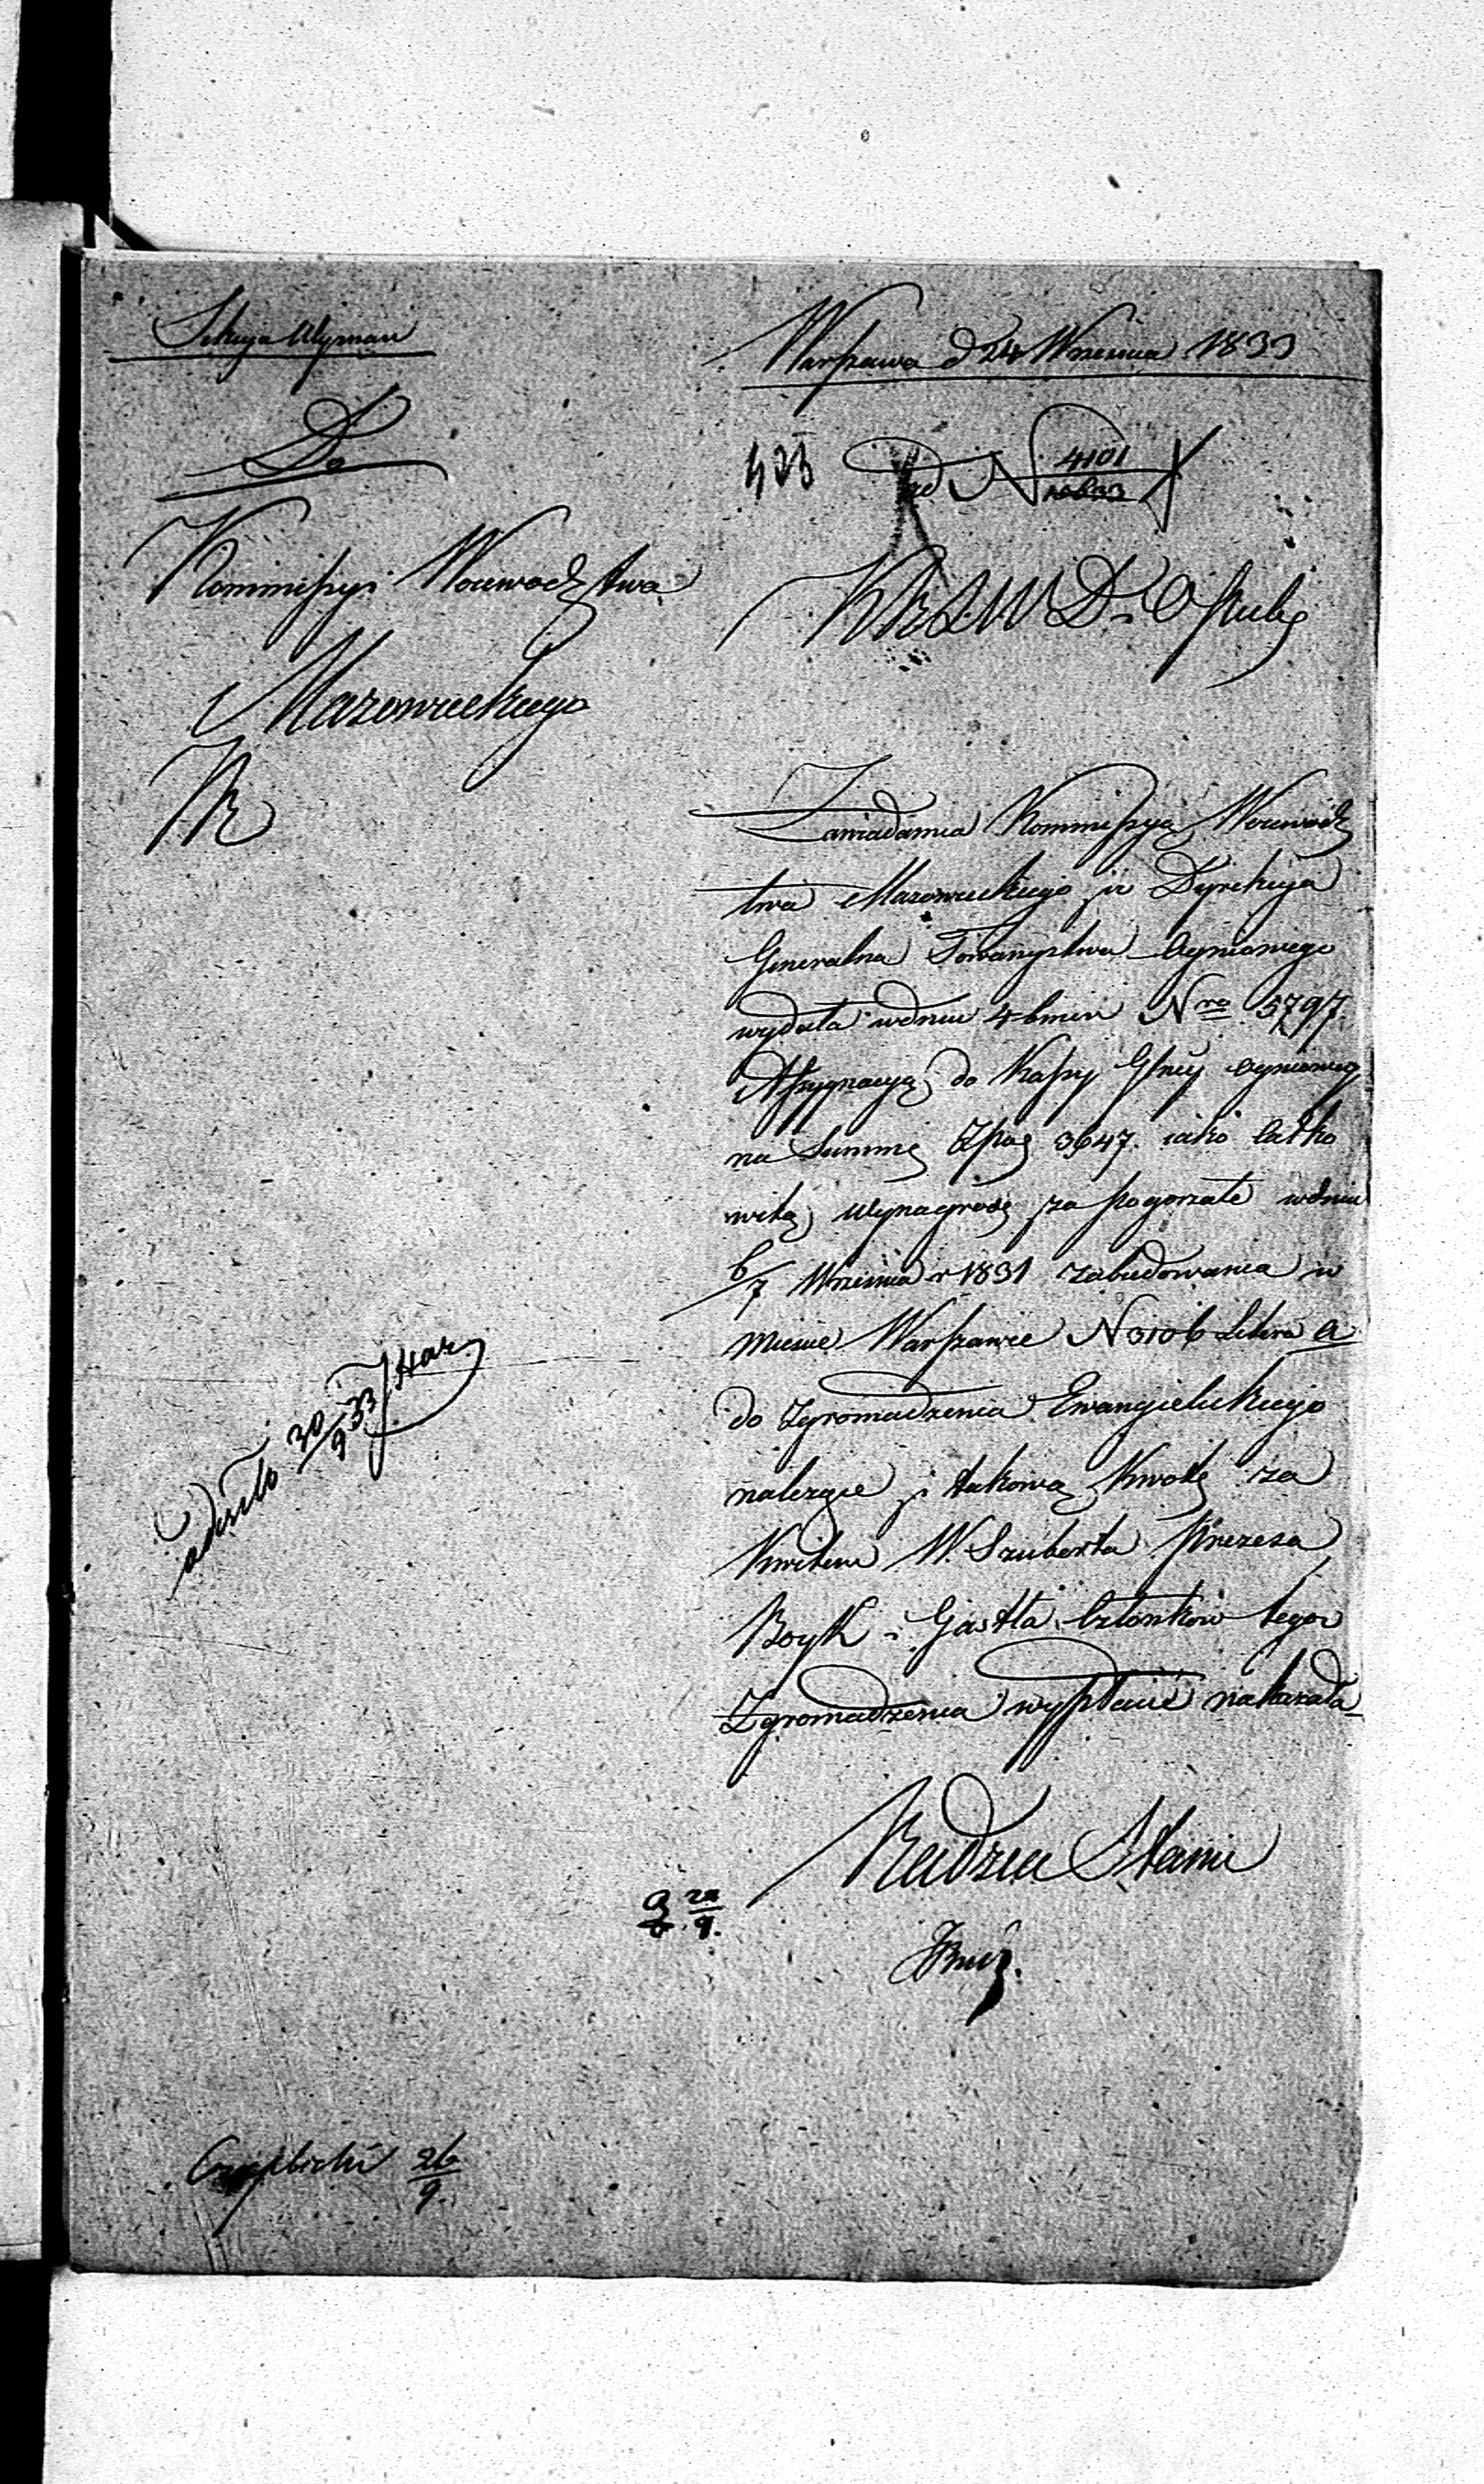 Sekcya Wyznań
Do
Kommissyi Woiewodztwa
Mazowieckiego
Warszawa d 24 Września 1833
ad N 4101
KRSW D i O Publ
Zawiadamia Kommissyą Woiewódz
twa Mazowieckiego iż Dyrekcya
Generalna Towarzystwa Ogniowego
wydała w dniu 4 b m i r Nro 5797.
Assygnacyą do Kassy Głney Ogniowey
na Summę Złpol 3647. iako całko
witą wynagrodz za pogorzałe w dniu
6/7 Września r 1831 zabudowania w
mieście Warszawie N 3106 Litera a
do Zgromadzenia Ewangielickiego
należące i takową kwotę za
Kwitem W. Szuberta Prezesa
i Gastla Członków tegoż
Zgromadzenia wypłacić nakazała
Radzca Stanu
odeszło 30/9 33
26/9.